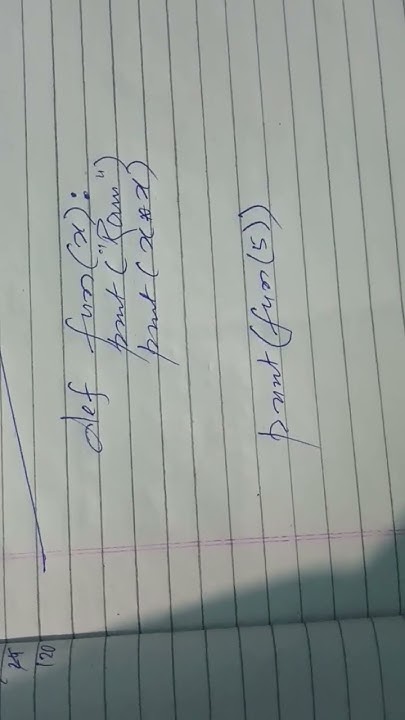 def fun(x):
print("Ram")
print(x*x)
print(fun(5))
25
120